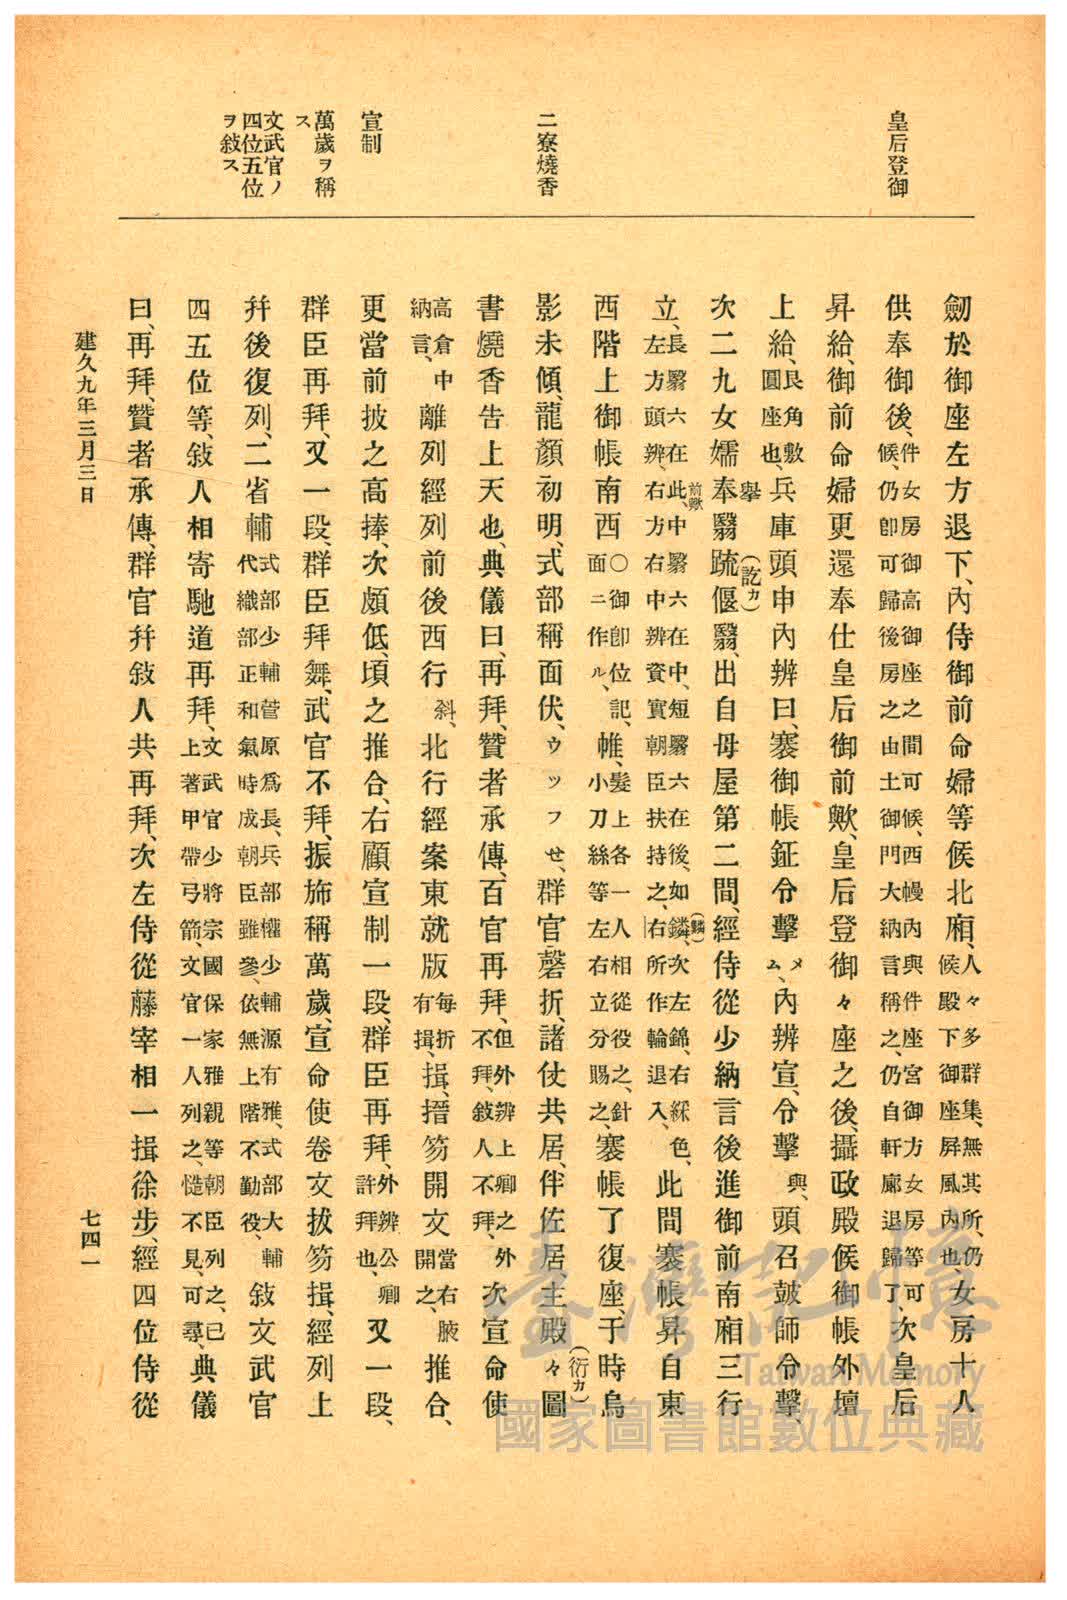 皇后登御
二寮燒香
宣制
萬歲ヲ稱
ス
文武官ノ
四位五位
ヲ敍ス
劒於御座左方退下、內侍御前命婦等候北廂、人々多群集、無其所、仍候殿下御座屏風內也、女房十人
供奉御後、件女房御高御座之間可候、西幔內與件座宮御方女房等可候、仍卽可歸後房之由土御門大納言稱之、仍自軒廊退歸了、次皇后
昇給、御前命婦更還奉仕皇后御前歟、皇后登御々座之後、攝政殿候御帳外壇
上給、艮角敷圓座也、兵庫頭申內辨曰、褰御帳鉦令擊メム、內辨宣、令擊與、頭召鼓師令擊、(訖カ)
次二九女嬬奉擧翳䟽偃翳、出自母屋第二間、經侍從少納言後進御前南廂三行
立、長翳六在此、前歟中翳六在中、短翳六在後、如鱗、(鱗)次左錦、右綵色、左方頭辨、右方右中辨資實朝臣扶持之、右所作輪退入、此間褰帳昇自東
西階上御帳南西〇御卽位記、面ニ作ル、帷、髮上各一人相從役之、針小刀絲等左右立分賜之、褰帳了復座、于時烏
影未傾、龍顏初明、式部稱面伏、ウツフせ、群官磬折、諸仗共居、伴佐居、主殿々(衍カ)圖
書燒香告上天也、典儀曰、再拜、贊者承傳、百官再拜、但外辨上卿之外不拜、敍人不拜、次宣命使
高倉中納言、離列經列前後西行斜、北行經案東就版每折有揖、揖、搢笏開文當右腋開之、推合、
更當前披之高捧、次頗低、頃之推合、右顧宣制一段、群臣再拜、外辨公卿許拜也、又一段、
群臣再拜、又一段、群臣拜舞、武官不拜、振旆稱萬歲、宣命使卷文拔笏揖、經列上
幷後復列、二省輔式部少輔菅原爲長、兵部權少輔源有雅、式部大輔代織部正和氣時成朝臣雖參、依無上階不勤役、敍文武官
四五位等、敍人相寄馳道再拜、文武官少將宗國保家雅親等朝臣列之、已上著甲帶弓箭、文官一人列之、慥不見、可尋、典儀
曰、再拜、贊者承傳、群官幷敍人共再拜、次左侍從藤宰相一揖徐步、經四位侍從
建久九年三月三日
七四一
臺灣記憶
Taiwan Memory
國家圖書館數位典藏